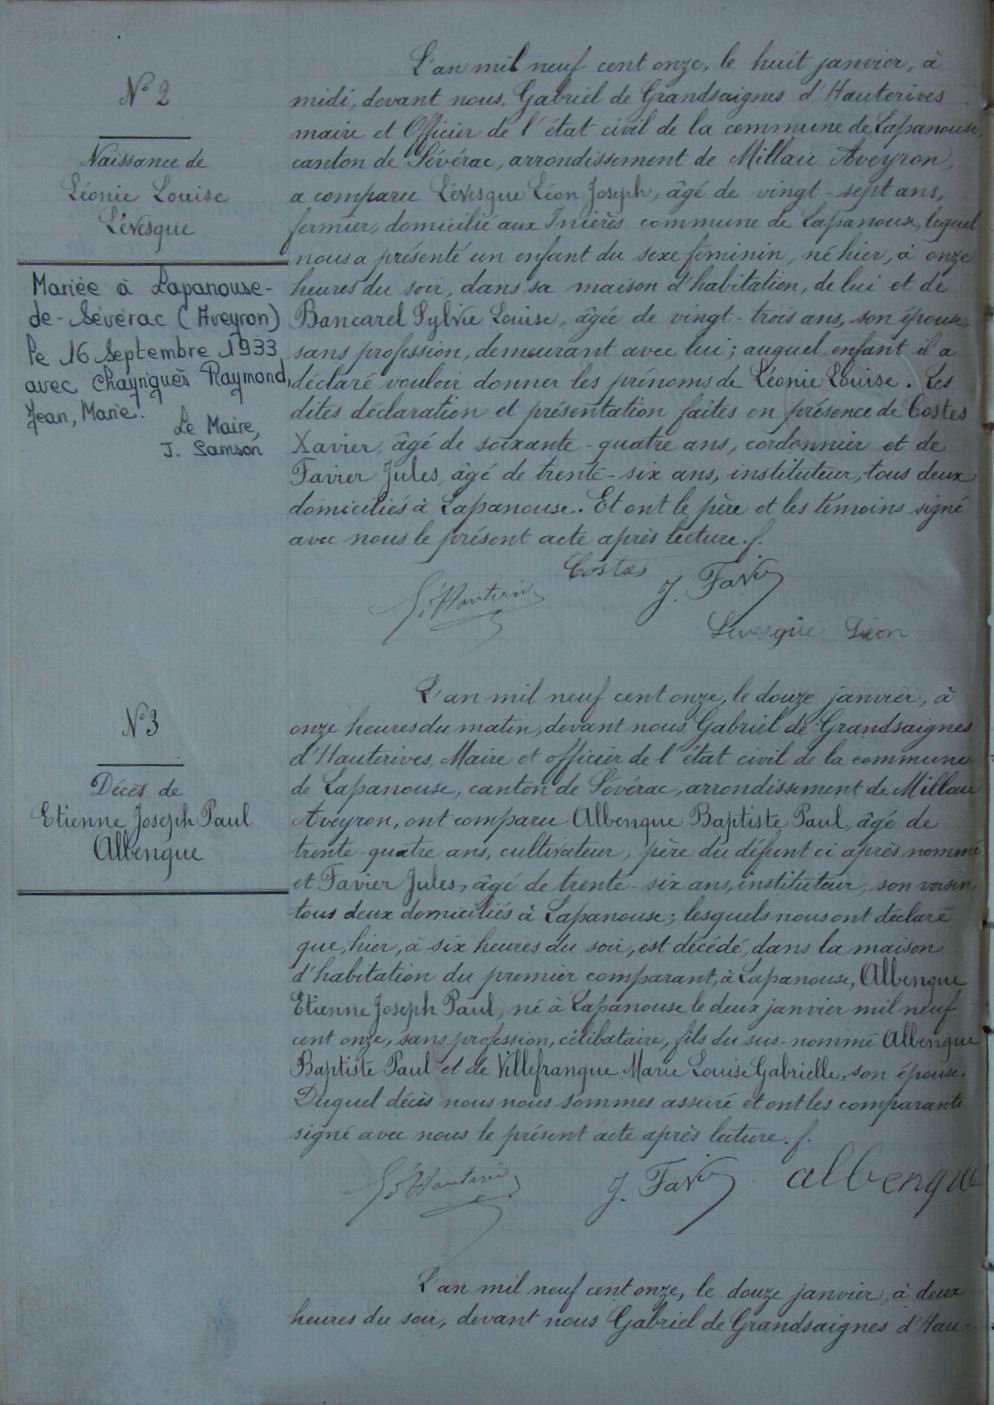 N° 2
Naissance de
Léonie Louise
Lévesque
Mariée à Lapanouse-
de-Sévérac (Aveyron)
le 16 Septembre 1933
avec Chayriguès Raymond,
Jean, Marie.
Le Maire,
J. Samson
L'an mil neuf cent onze, le huit janvier, à
midi, devant nous, Gabriel de Grandsaignes d'Hauterives
maire et Officier de l'état civil de la commune de Lapanouse,
canton de Sévérac, arrondissement de Millau Aveyron,
a comparu Lévesque Léon Joseph, âgé de vingt-sept ans,
fermier, domicilié aux Inières commune de Lapanouse, lequel
nous a présenté un enfant du sexe féminin, né hier, à onze
heures du soir, dans sa maison d'habitation, de lui et de
Bancarel Sylvie Louise, âgée de vingt-trois ans, son épouse,
sans profession, demeurant avec lui; auquel enfant il a
déclaré vouloir donner les prénoms de Léonie Louise. Les
dites déclaration et présentation faites en présence de Costes
Xavier, âgé de soixante-quatre ans, cordonnier et de
Favier Jules, âgé de trente-six ans, instituteur, tous deux
domiciliés à Lapanouse. Et ont le père et les témoins signé
avec nous le présent acte après lecture.
Costes
G. d'Hauterives J. Favier
Levesque Léon
N° 3
Décès de
Etienne Joseph Paul
Albenque
L'an mil neuf cent onze, le douze janvier, à
onze heures du matin, devant nous Gabriel de Grandsaignes
d'Hauterives, Maire et officier de l'état civil de la commune
de Lapanouse, canton de Sévérac, arrondissement de Millau
Aveyron, ont comparu Albenque Baptiste Paul, âgé de
trente-quatre ans, cultivateur, père du défunt ci après nommé
et Favier Jules, âgé de trente-six ans, instituteur, son voisin,
tous deux domiciliés à Lapanouse; lesquels nous ont déclaré
que, hier, à six heures du soir, est décédé, dans la maison
d'habitation du premier comparant, à Lapanouse, Albenque
Etienne Joseph Paul, né à Lapanouse le deux janvier mil neuf
cent onze, sans profession, célibataire, fils du sus-nommé Albenque
Baptiste Paul et de Villefranque Marie Louise Gabrielle, son épouse.
Duquel décès nous nous sommes assuré et ont les comparants
signé avec nous le présent acte après lecture.
G. d'Hauterives J. Favier albenque
L'an mil neuf cent onze, le douze janvier, à deux
heures du soir, devant nous Gabriel de Grandsaignes d'Hau-